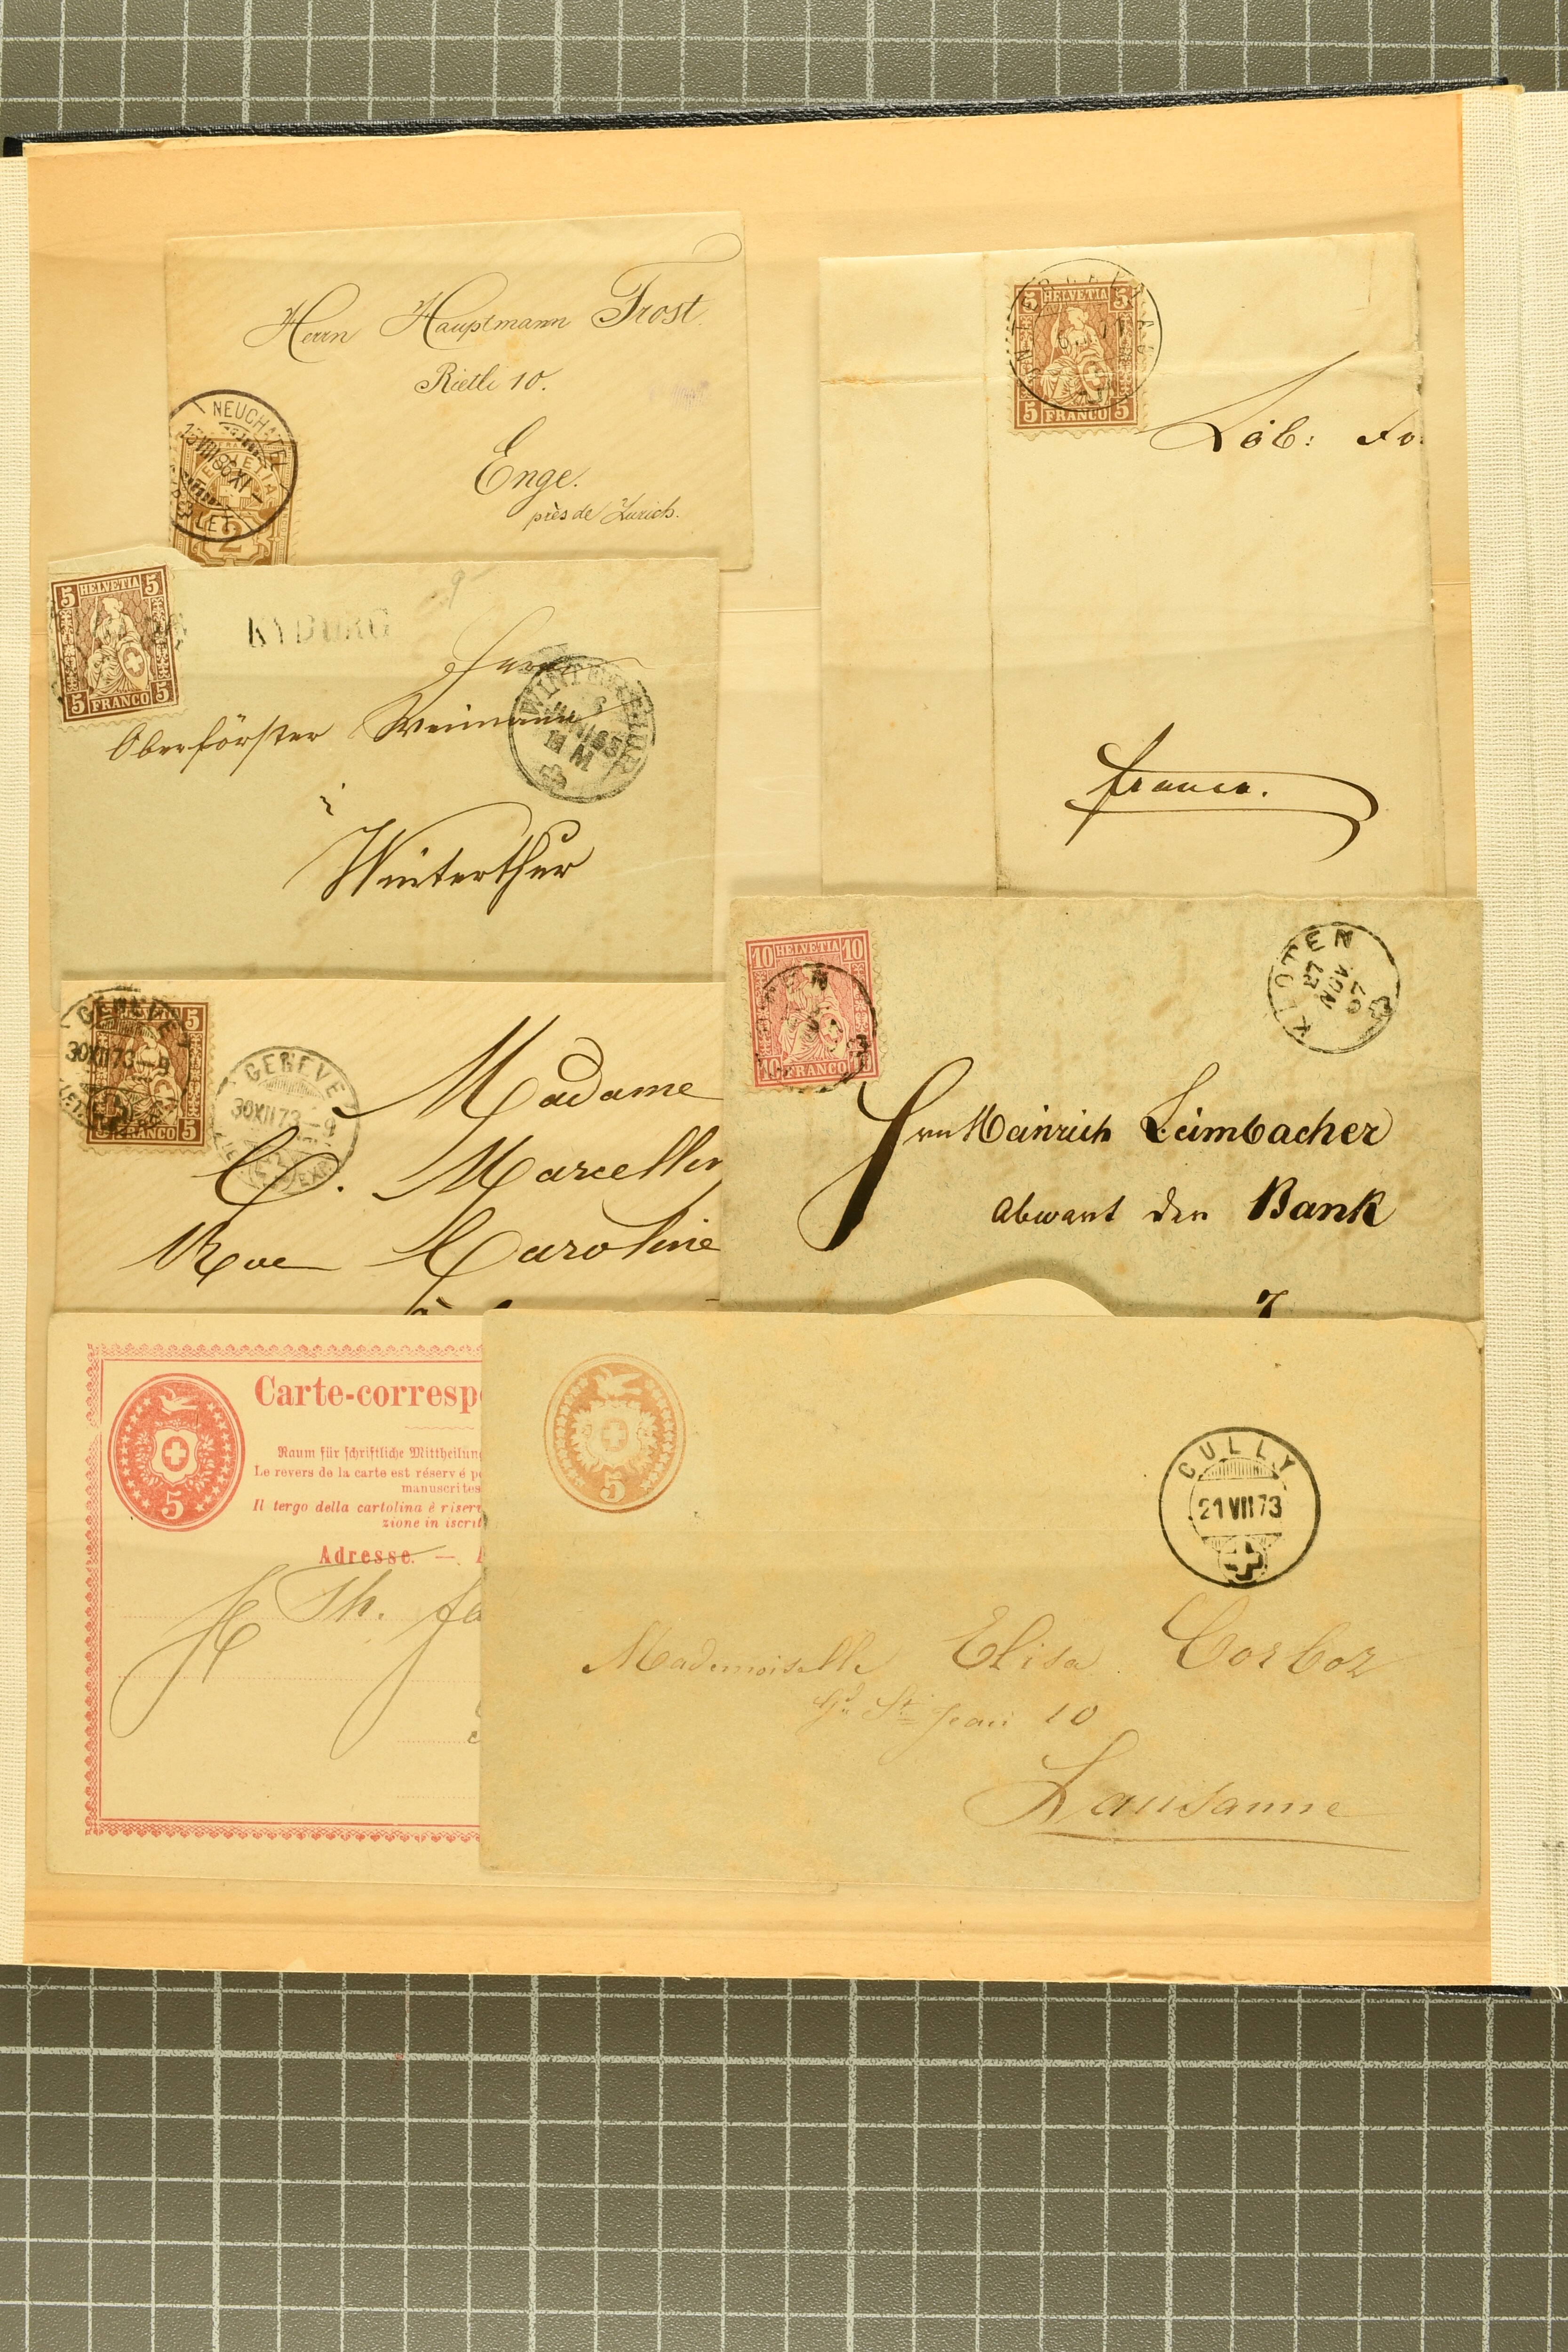 Herrn Hauptmann Frost.
Rietli 10.
Enge.
près de Zurich.
NEUCHATEL
13 VIII 96 XI-
LET
HELVETIA
2
5 HELVETIA 5
5 FRANCO 5
Löb: Fo
franco.
5 HELVETIA 5
5 FRANCO 5
KYBURG
Herrn
Oberförster Weimann
i
Winterthur
WINTERTHUR
11 M
GENEVE
30 XII 73 - 9
5
FRANCO 5
GENEVE
30 XII 73 - 9
Madame
C. Marcellin
Rue Caroline
à
10 HELVETIA 10
10 FRANCO
KLOTEN
27
NOV
67
Hrn Heinrich Leimbacher
Abwart der Bank
Carte-corresp
Raum für schriftliche Mittheilun
Le revers de la carte est réservé p
manuscrites
Il tergo della cartolina è riser
zione in iscrit
Adresse. —
5
M Th. Ja
5
CULLY
21 VII 73
Mademoiselle Elisa Corboz
Gd. St. Jean 10
Lausanne